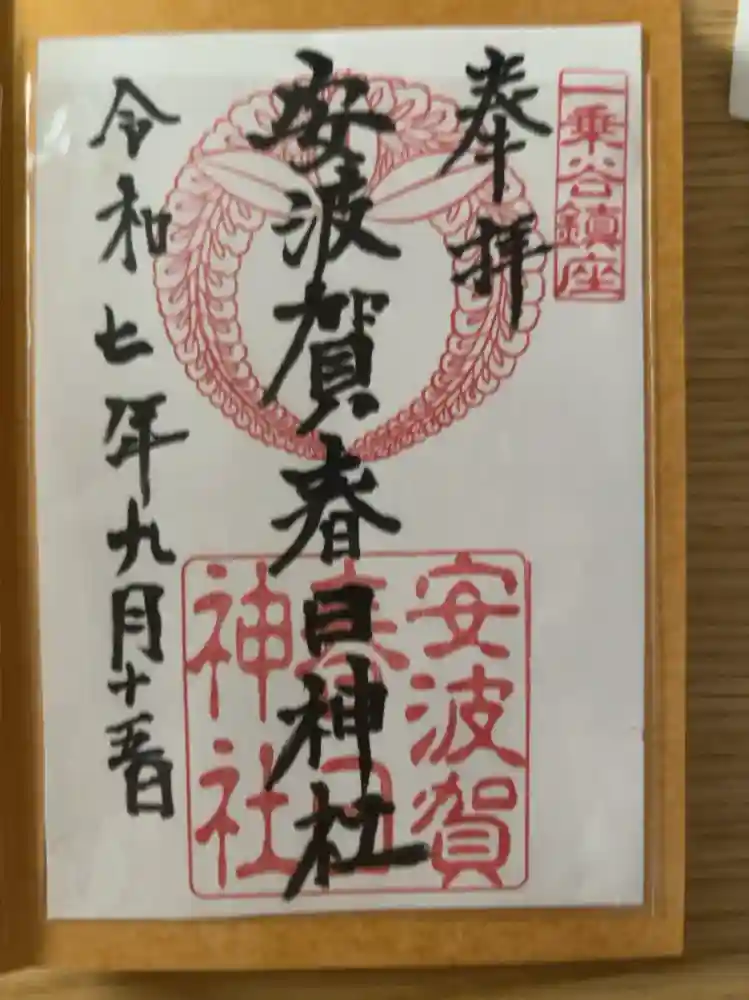 一乗谷鎮座
奉拝
安波賀春日神社
安波賀
春日
神社
令和七年九月十五日